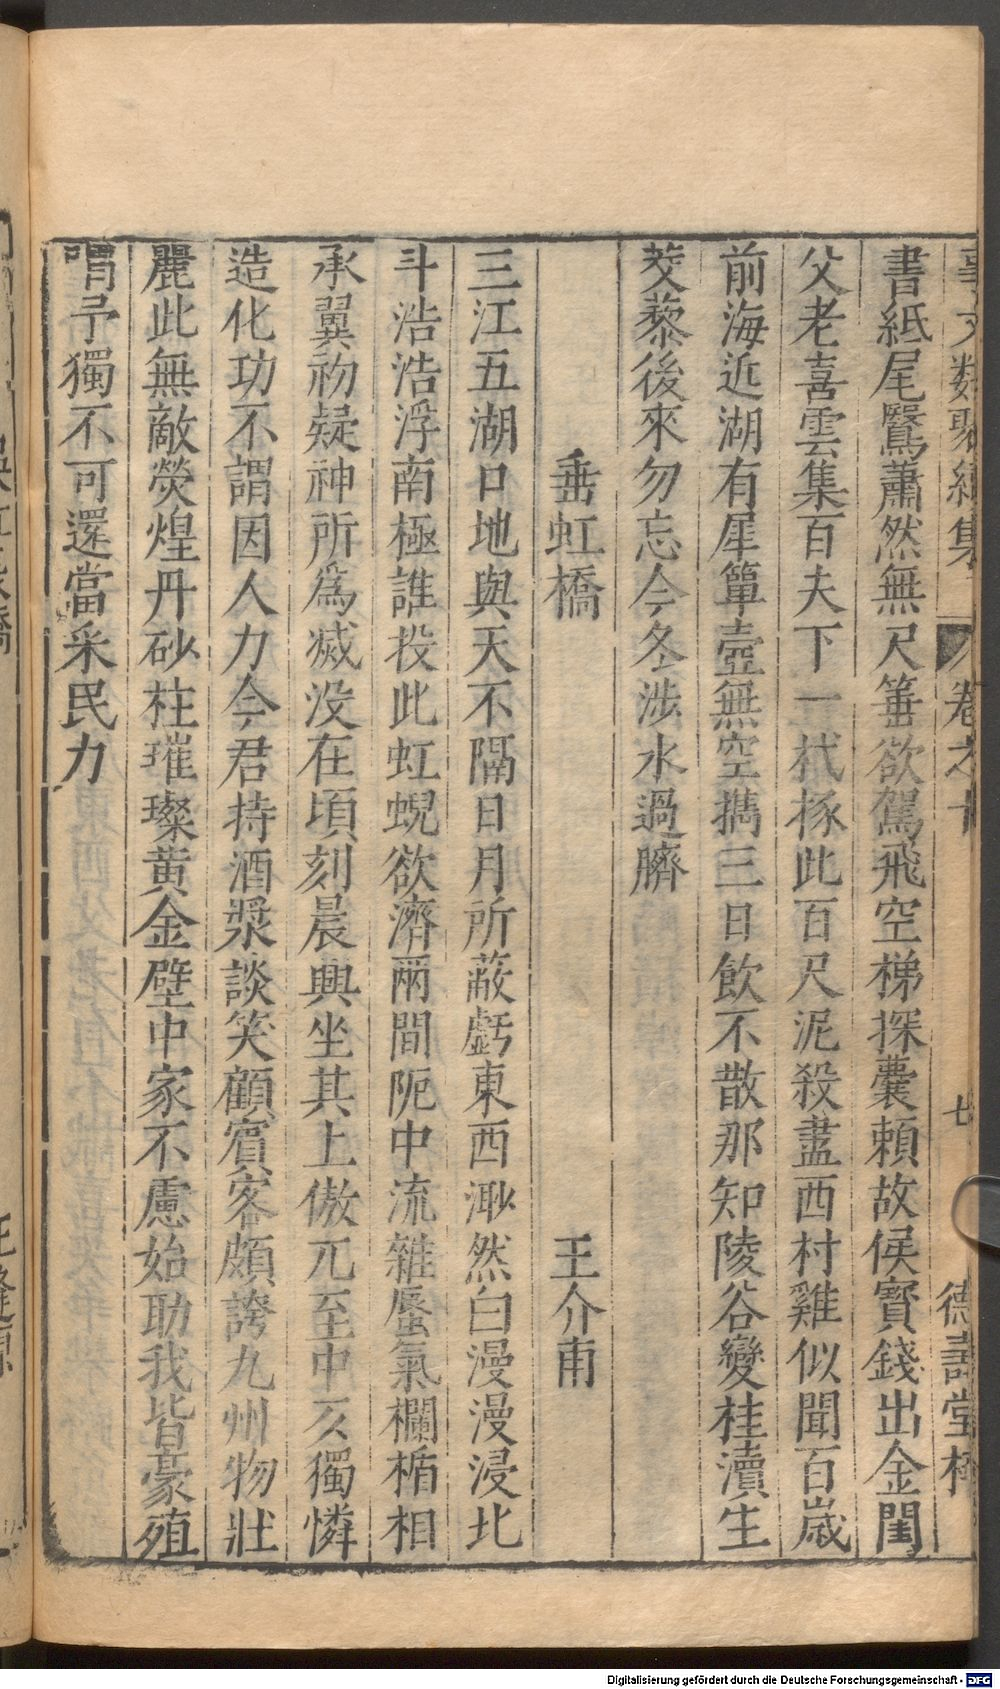 事文類聚續集 卷之十 七 德壽堂梓
書紙尾鷖蕭然無尺箠欲駕飛空梯探囊賴故侯寶錢出金閨
父老喜雲集百夫下一杙椓此百尺泥殺盡西村雞似聞百歲
前海近湖有犀簞壺無空攜三日飲不散那知陵谷變桂瀆生
茭藜後來勿忘今冬涉水過臍
垂虹橋 王介甫
三江五湖口地與天不隔日月所蔽虧東西渺然白漫漫浸北
斗浩浩浮南極誰投此虹蜺欲濟兩間阨中流雜蜃氣欄楯相
承翼初疑神所爲滅没在頃刻晨興坐其上傲兀至中仄獨憐
造化功不謂因人力今君持酒漿談笑顧賓客頗誇九州物壯
麗此無敵熒煌丹砂柱璀璨黄金壁中家不慮始助我皆豪殖
喟予獨不可還當采民力
Digitalisierung gefördert durch die Deutsche Forschungsgemeinschaft - DFG